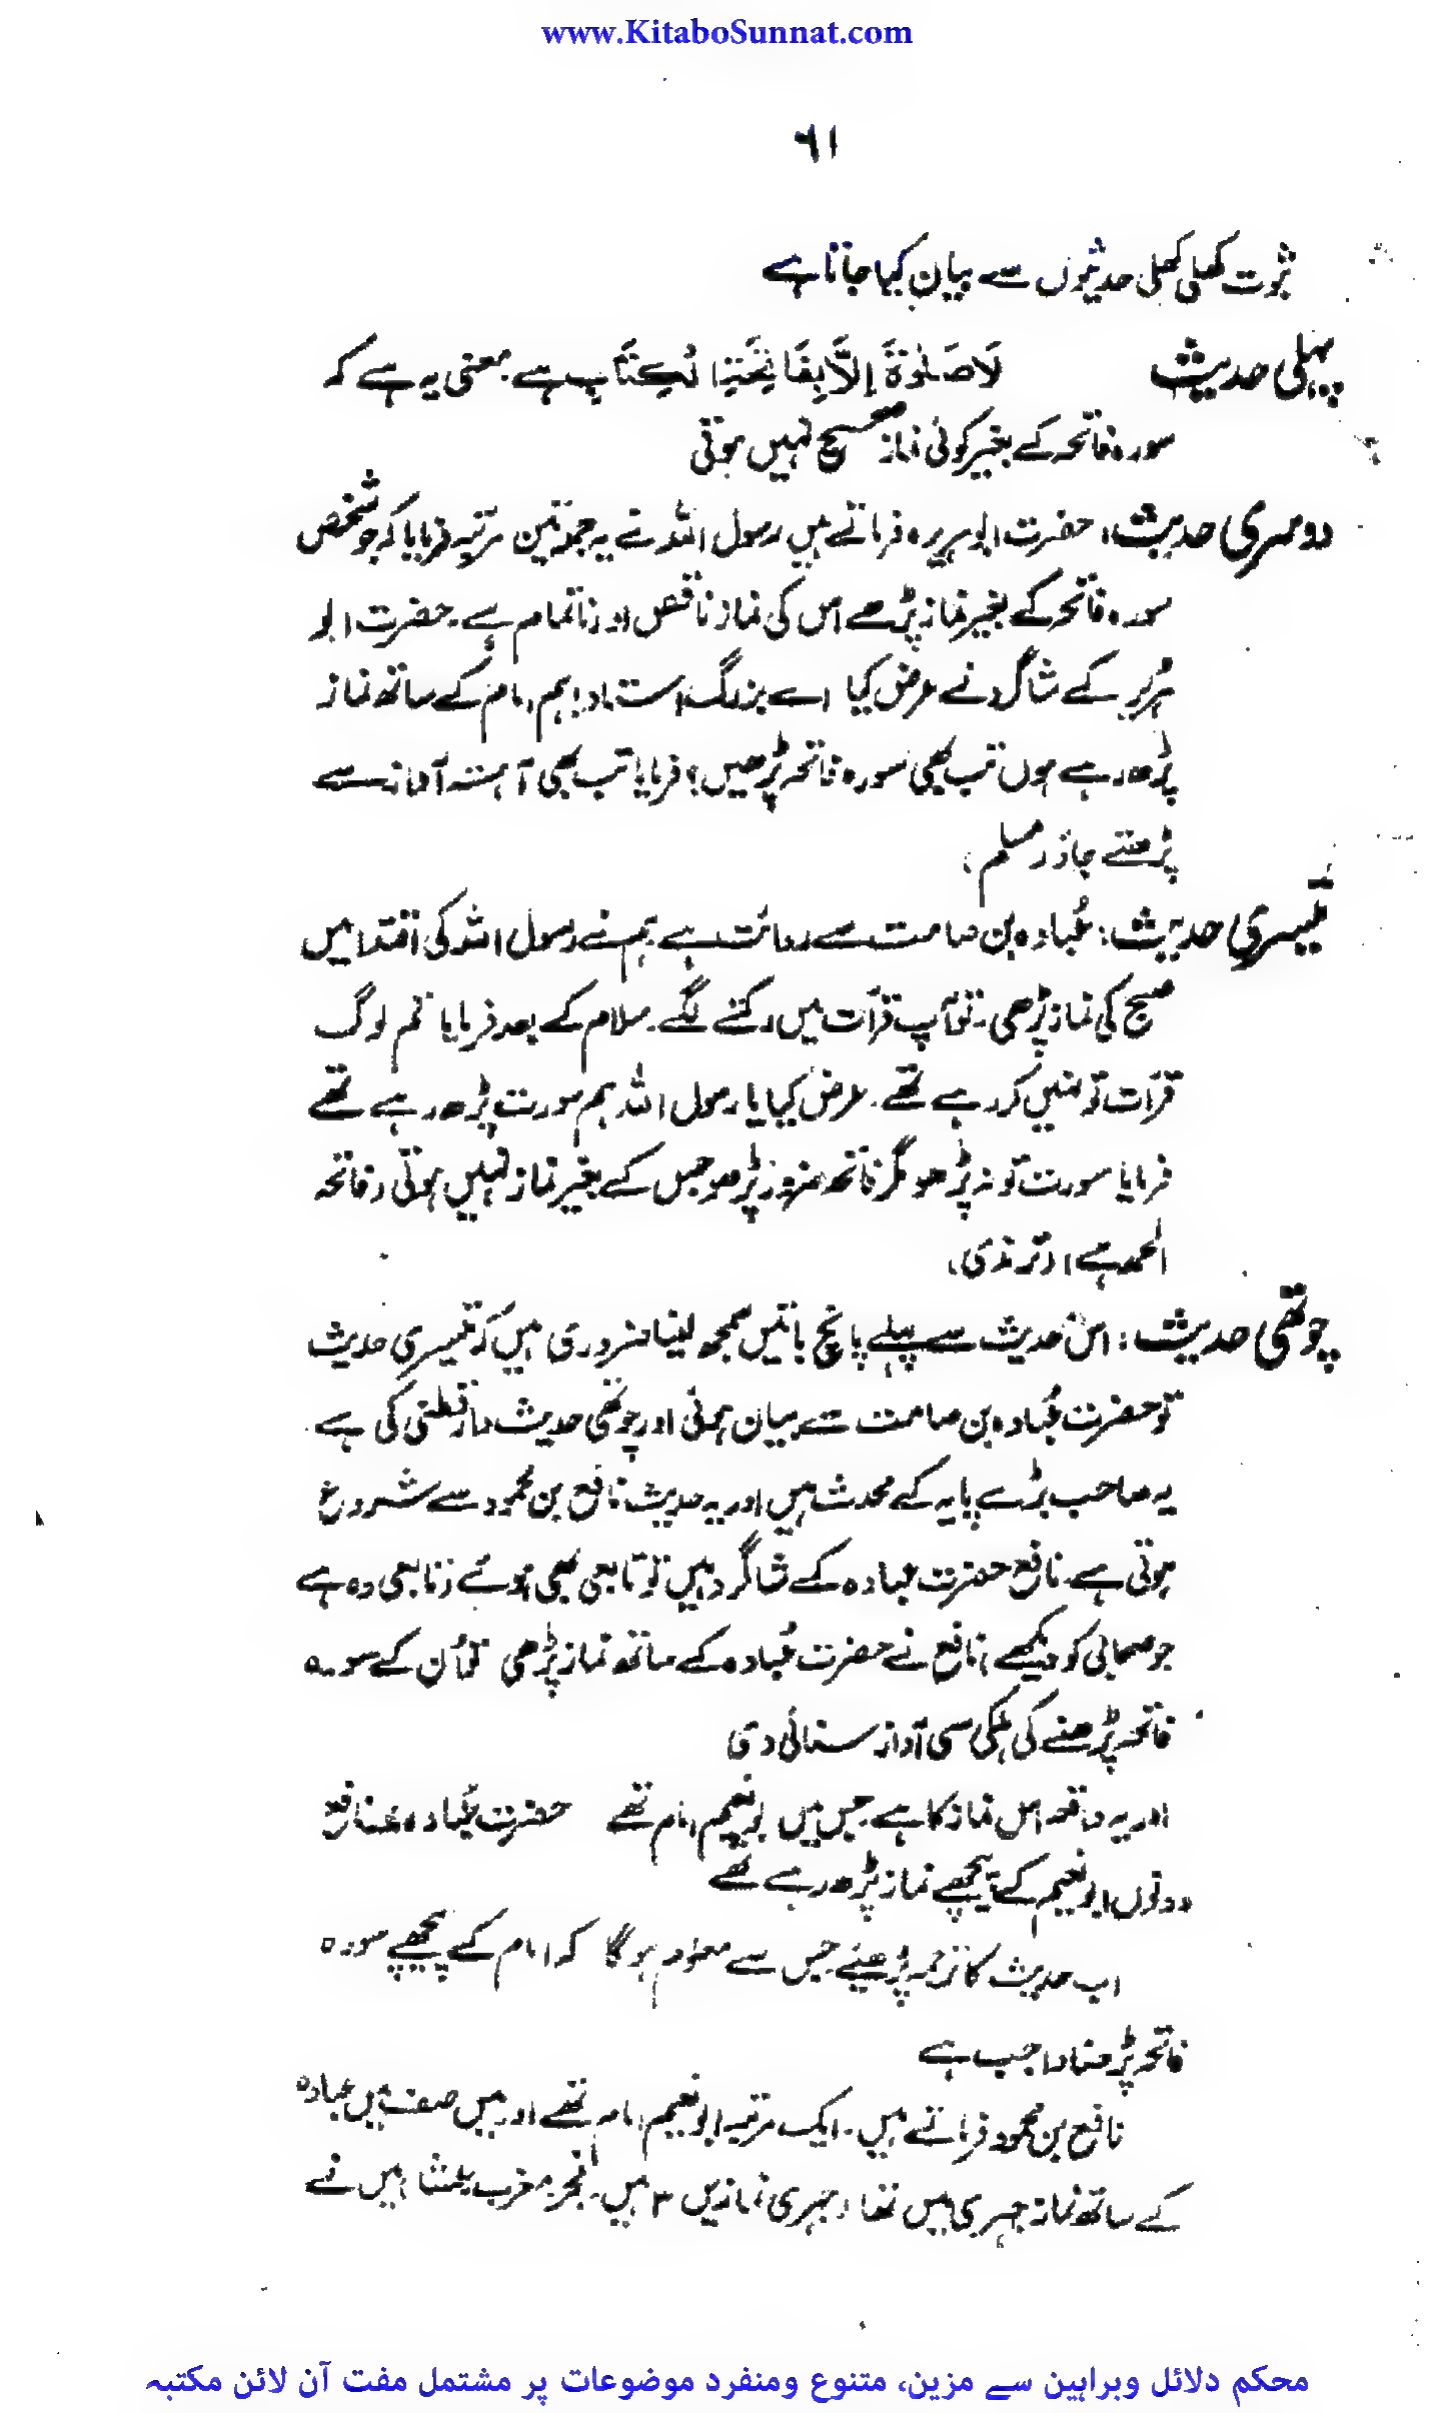 www.KitaboSunnat.com
٦١
ثبوت کھلی کھلی حدیثوں سے بیان کیا جاتا ہے
پہلی حدیث لَاصَلٰوۃَ اِلَّا بِفَاتِحَۃِ الْکِتَابِ ہے۔ معنی یہ ہے کہ
سورہ فاتحہ کے بغیر کوئی نماز صحیح نہیں ہوتی
دوسری حدیث: حضرت ابوہریرہ فرماتے ہیں رسول اللہ نے یہ جملہ تین مرتبہ فرمایا کہ جو شخص
سورہ فاتحہ کے بغیر نماز پڑھے اس کی نماز ناقص اور ناتمام ہے۔ حضرت ابو
ہریرہ کے شاگرد نے عرض کیا اے بزرگ استاد! ہم امام کے ساتھ نماز
پڑھ رہے ہوں تب بھی سورہ فاتحہ پڑھیں؟ فرمایا تب بھی آہستہ آواز سے
پڑھتے جاؤ (مسلم)
تیسری حدیث: عُبادہ بن صامت سے روائت ہے ہم نے رسول اللہ کی اقتدا میں
صبح کی نماز پڑھی۔ تو آپ قرأت میں رکنے لگے۔ سلام کے بعد فرمایا تم لوگ
قرأت تو نہیں کر رہے تھے۔ عرض کیا یا رسول اللہ ہم سورت پڑھ رہے تھے
فرمایا سورت تو نہ پڑھو مگر فاتحہ ضرور پڑھو جس کے بغیر نماز نہیں ہوتی (فاتحہ
الحمد ہے) (ترمذی)
چوتھی حدیث: اس حدیث سے پہلے پانچ باتیں سمجھ لینا ضروری ہیں کہ تیسری حدیث
تو حضرت عُبادہ بن صامت سے بیان ہوئی اور چوتھی حدیث دارقطنی کی ہے۔
یہ صاحب بڑے پایہ کے محدث ہیں اور یہ حدیث نافع بن محمود سے شروع
ہوتی ہے۔ نافع حضرت عبادہ کے شاگرد ہیں تو تابعی بھی ہوئے (تابعی وہ ہے
جو صحابی کو دیکھے) نافع نے حضرت عُبادہ کے ساتھ نماز پڑھی تو اُن کے سورہ
فاتحہ پڑھنے کی ہلکی سی آواز سنائی دی
اور یہ واقعہ اس نماز کا ہے جس میں ابونعیم امام تھے حضرت عُبادہ نافع
دونوں ابونعیم کے پیچھے نماز پڑھ رہے تھے
اب حدیث کا ترجمہ پڑھیئے جس سے معلوم ہوگا کہ امام کے پیچھے سورہ
فاتحہ پڑھنا واجب ہے
نافع بن محمود فرماتے ہیں۔ ایک مرتبہ ابونعیم امام تھے اور میں صف میں عبادہ
کے ساتھ نماز جہری میں تھا (جہری نمازیں ۳ ہیں۔ فجر مغرب عشا) میں نے
محکم دلائل وبراہین سے مزین، متنوع ومنفرد موضوعات پر مشتمل مفت آن لائن مکتبہ